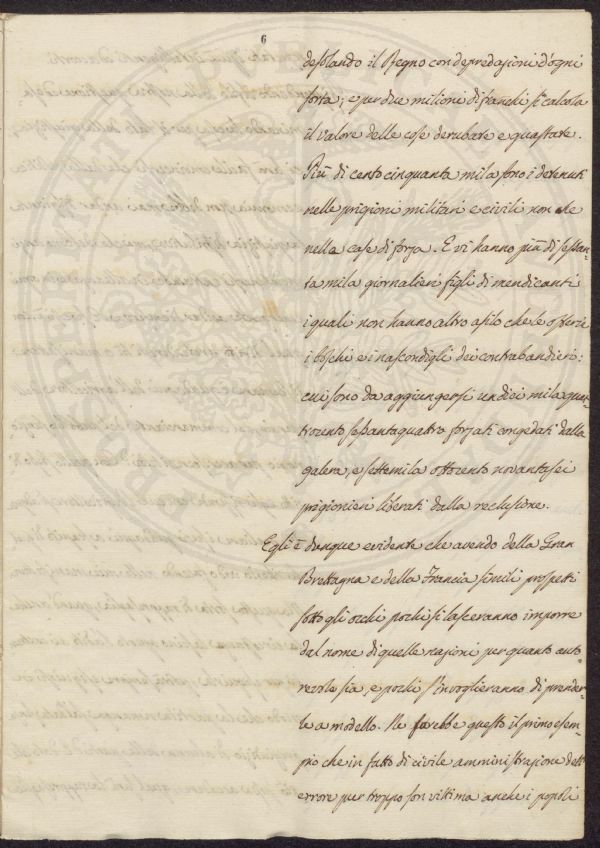 6
desolando il Regno con depredazioni d'ogni
sorta; e per due milioni di franchi si calcola
il valore delle cose derubate e guastate.
Più di cento cinquanta mila sono i detenuti
nelle prigioni militari e civili non che
nelle case di forza. E vi hanno più di sessan-
tamila giornalieri figli di mendicanti
i quali non hanno altro asilo che le osterie
i boschi e i nascondigli dei contrabandieri:
cui sono da aggiungersi undici mila quat-
trocento sessantaquattro forzati congedati dalla
galera, e settemila ottocento novantasei
prigionieri liberati dalla reclusione.
Egli è dunque evidente che avendo della Gran
Brettagna e della Francia simili prospetti
sotto gli occhi pochi si lasceranno imporre
dal nome di quelle nazioni per quanto auto-
revole sia, e pochi s'invoglieranno di prender-
le a modello. Ne sarebbe questo il primo esem-
pio che in fatto di civile amministrazione dell'
errore pur troppo son vittima anche i popoli